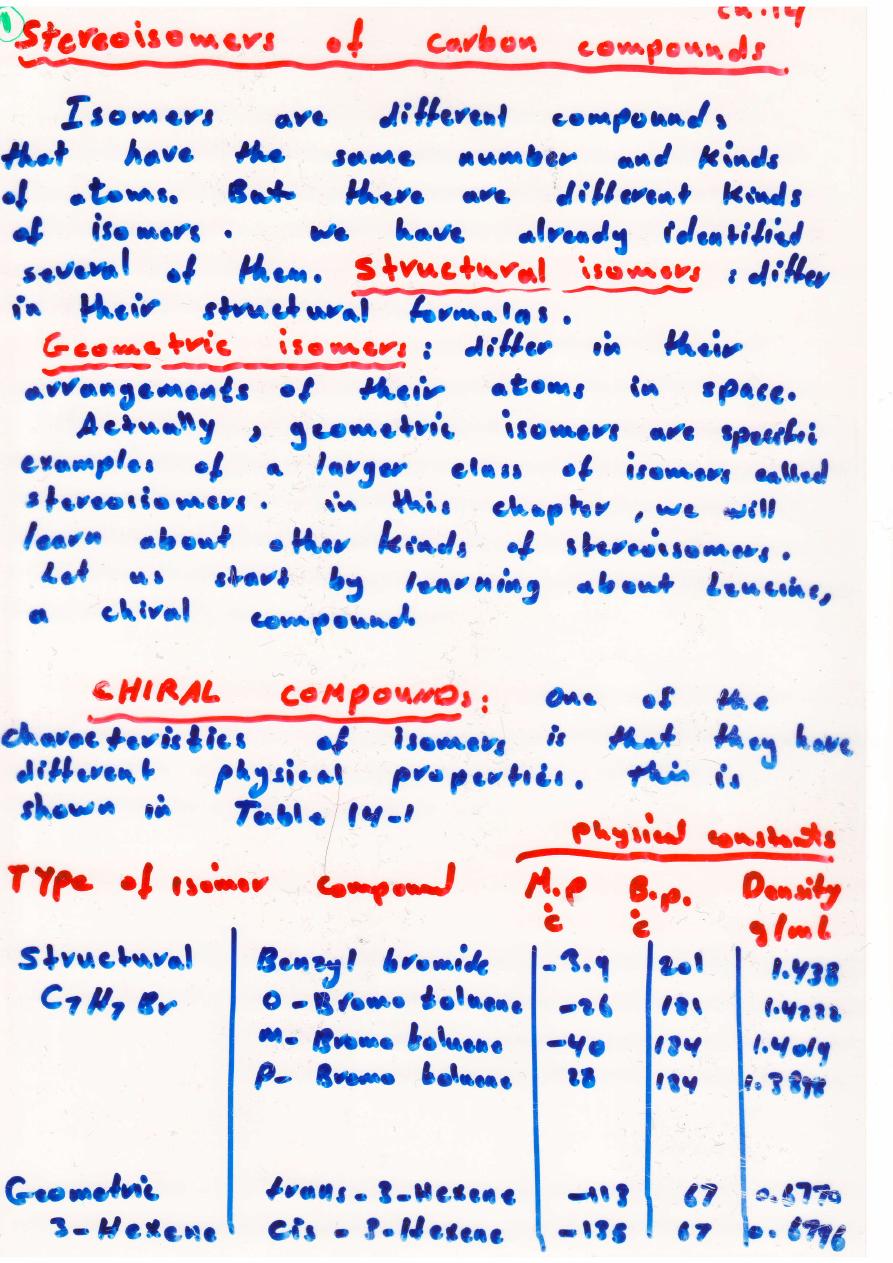 1
ch.14
Stereoisomers of carbon compounds
Isomers are different compounds
that have the same number and kinds
of atoms. But there are different kinds
of isomers. we have already identified
several of them. Structural isomers : differ
in their structural formulas.
Geometric isomers: differ in their
arrangements of their atoms in space.
Actually, geometric isomers are specific
examples of a larger class of isomers called
stereoisomers. in this chapter, we will
learn about other kinds of stereoisomers.
Let us start by learning about Leucine,
a chiral compound.
CHIRAL COMPOUNDS: One of the
characteristics of isomers is that they have
different physical properties. this is
shown in Table 14-1
physical constants
TYPe of isomer compound M.p B.p. Density
c c g/mL
Structural Benzyl bromide -3.9 201 1.438
C7H7Br O-Bromo toluene -26 181 1.4222
m- Bromo toluene -40 184 1.4019
P- Bromo toluene 28 184
Geometric trans-3-Hexene -113 67 0.6770
3-Hexene Cis-3-Hexene -135 67 0.6796